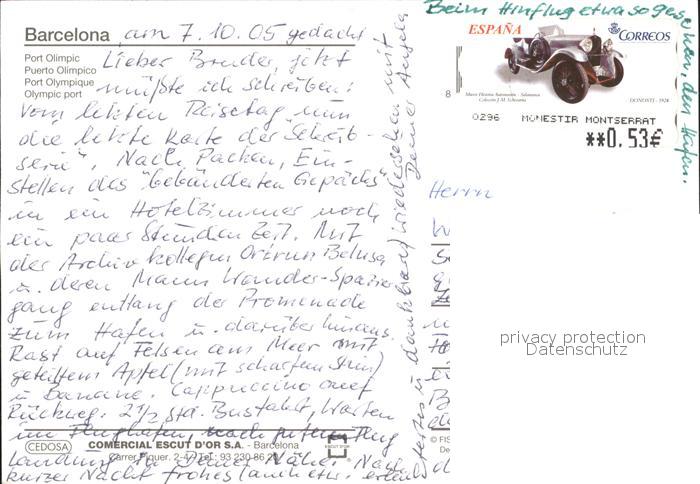 Barcelona am 7.10.05 gedacht
Port Olimpic
Puerto Olimpico
Port Olympique
Olympic port
Lieber Bruder, jetzt
müßte ich schreiben:
Vom letzten Reisetag nun
die letzte Karte der "Schreib-
serie". Nach Packen, Ein-
stellen des "gebündelten Gepäcks"
in ein Hotelzimmer noch
ein paar Stunden Zeit. Mit
der Archivkollegin
u. deren Mann Wander-Spazier-
gang entlang der Promenade
zum Hafen u. darüber hinaus.
Rast auf Felsen am Meer mit
geteiltem Apfel (mit scharfem
u. Banane. Cappuccino auf
Rückweg. 2 1/2 Std. Busfahrt, Warten
im Flughafen, nach gutem Flug
Landung in Deiner Nähe. Nach
kurzer Nacht frohes
CEDOSA
COMERCIAL ESCUT D'OR S.A. - Barcelona
Carrer Piquer. 2-4 Tel.: 93 230 86 2
dankbares Wiedersehen mit
Deiner Angela
Beim Hinflug etwa so gese-
hen, den Hafen.
ESPAÑA
CORREOS
Museo Historia Automoción - Salamanca
8
0296 MONESTIR MONTSERRAT
**0.53€
Herrn
privacy protection
Datenschutz
© FIS